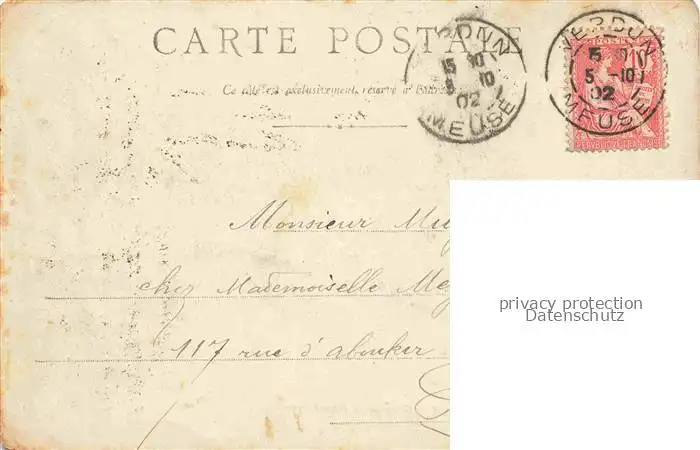 CARTE POSTALE
Ce côté est exclusivement réservé à
VERDUN
15
5 -10
02
MEUSE
VERDUN
15
5 -10
02
MEUSE
POSTES
10
Monsieur
chez Mademoiselle
117 rue d'aboukir
privacy protection
Datenschutz